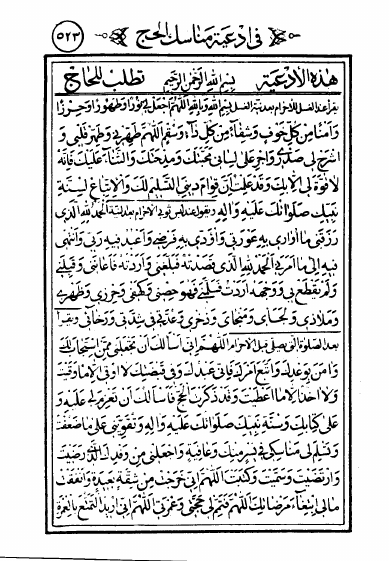 في ادعية مناسك الحج ٥٢٣
هذه الادعية بسم الله الرحمن الرحيم تطلب للحاج
يقرأ عند الغسل للاحرام بعد نية الغسل بسم الله وبالله اللهم اجعل لي نورا وطهورا وحرزا
وامنا من كل خوف وشفاء من كل داء وسقم اللهم طهرني وطهر قلبي و
اشرح لي صدري واجر على لساني محبتك ومدحتك والثناء عليك فانه
لا قوة لي الا بك وقد علمت ان قوام ديني التسليم لك والاتباع لسنة
نبيك صلواتك عليه واله ويقول عند لبس ثوبي الاحرام بعد لبسه الحمد لله الذي
رزقني ما اواري به عورتي واؤدي به فرضي واعبد فيه ربي وانتهي
فيه الى ما امرني الحمد لله الذي قصدته فبلغني واردته فاعانني وقبلني
ولم يقطع بي ووجهه اردت فسلمني فهو حصني وكهفي وحرزي وظهري
وملاذي ولجائي ومنجاي وذخري وعدتي في شدتي ورخائي ويقرأ
بعد الصلوة التي يصلي قبل الاحرام اللهم اني اسالك ان تجعلني ممن استجاب لك
وامن بوعدك واتبع امرك فاني عبدك وفي قبضتك لا اوقى الا ما وقيت
ولا اخذ الا ما اعطيت وقد ذكرت الحج فاسالك ان تعزم لي عليه و
على كتابك وسنة نبيك صلواتك عليه واله وتقويني على ما ضعفت
وتسلم لي مناسكي في يسر منك وعافية واجعلني من وفدك الذين رضيت
وارتضيت وسميت وكتبت اللهم اني خرجت من شقة بعيدة وانفقت
مالي ابتغاء مرضاتك اللهم فتمم لي حجتي وعمرتي اللهم اني اريد التمتع بالعمرة